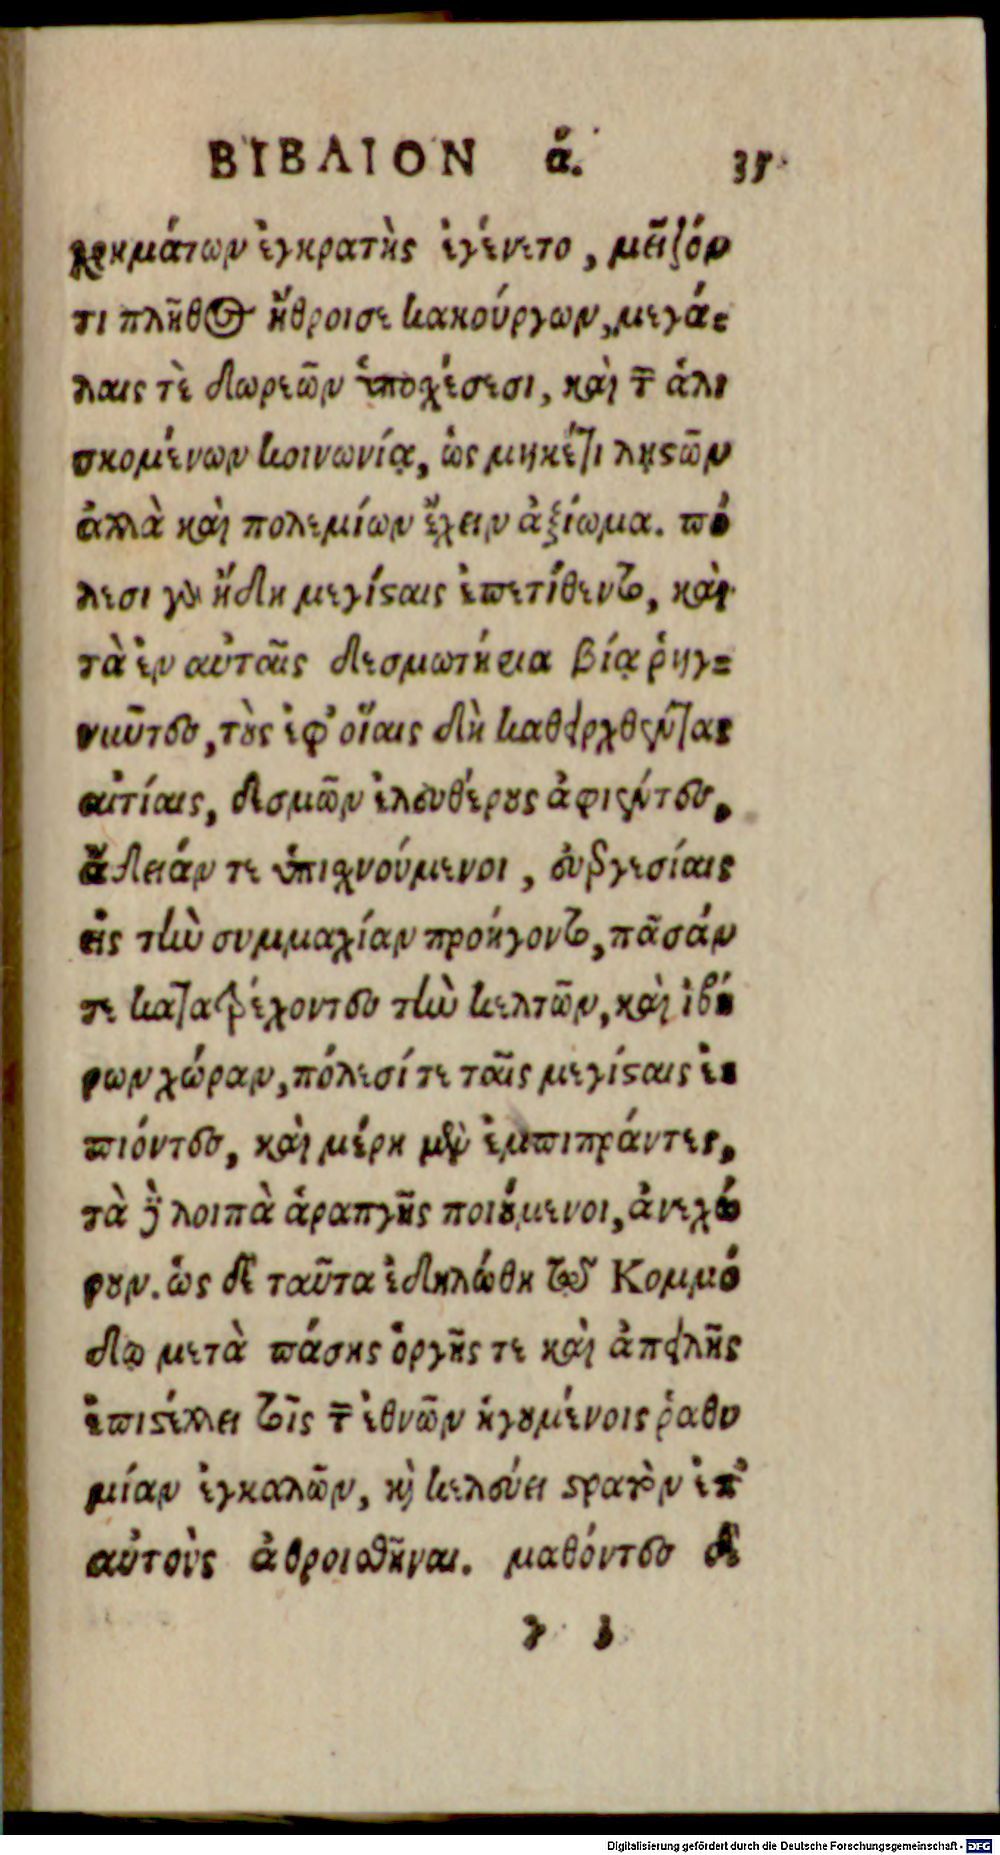 ΒΙΒΛΙΟΝ ά. 35
χρημάτων ἐγκρατὴς ἐγένετο, μεῖζόν
τι πλῆθος ἤθροισε κακούργων, μεγά-
λαις τὲ δωρεῶν ὑποχέσεσι, καὶ τ̄ ἁλι
σκομένων κοινωνίᾳ, ὡς μηκέτι λῃστῶν
ἀλλὰ καὶ πολεμίων ἔχειν ἀξίωμα. πό
λεσι γὰρ ἤδη μεγίσταις ἐπετίθεντο, καὶ
τὰ ἐν αὐταῖς δεσμωτήρια βίᾳ ῥηγ-
νῦντες, τοὺς ἐφ' οἵαις δὴ καθειρχθέντας
αἰτίαις, δεσμῶν ἐλευθέρους ἀφιέντες,
ἄδειάν τε ὑπιχνούμενοι, εὐεργεσίαις
εἰς τὴν συμμαχίαν προήγοντο, πᾶσάν
τε κατατρέχοντες τὴν κελτῶν, καὶ ἰβή
ρων χώραν, πόλεσί τε ταῖς μεγίσταις ἐ-
πιόντες, καὶ μέρη μὲν ἐμπιπράντες,
τὰ δὲ λοιπὰ ἁρπαγῆς ποιούμενοι, ἀνεχώ
ρουν. ὡς δὲ ταῦτα ἐδηλώθη τῷ Κομμό
δῳ μετὰ πάσης ὀργῆς τε καὶ ἀπειλῆς
ἐπιστέλλει τοῖς τ̄ ἐθνῶν ἡγουμένοις ῥαθυ
μίαν ἐγκαλῶν, καὶ κελεύει στρατὸν ἐπ'
αὐτοὺς ἀθροισθῆναι. μαθόντες δὲ
γ 3
Digitalisierung gefördert durch die Deutsche Forschungsgemeinschaft - DFG